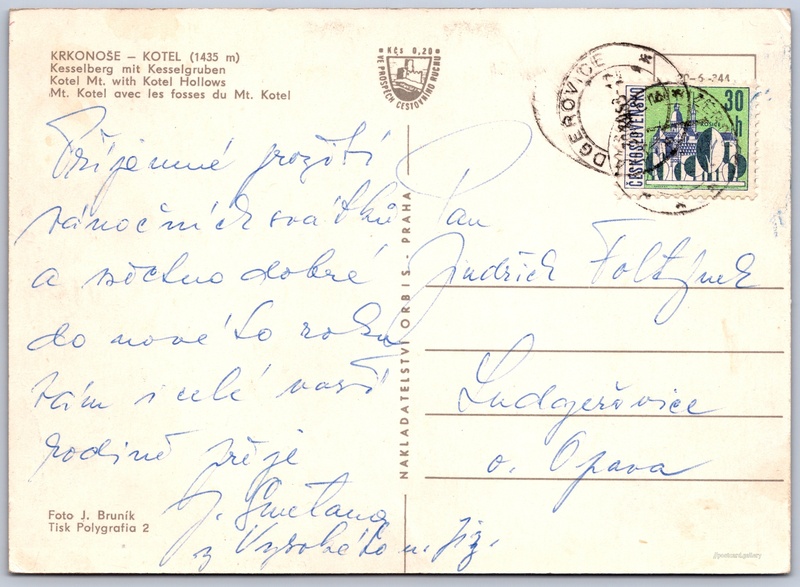 KRKONOŠE – KOTEL (1435 m)
Kesselberg mit Kesselgruben
Kotel Mt. with Kotel Hollows
Mt. Kotel avec les fosses du Mt. Kotel
Kčs 0,20
VE PROSPĚCH CESTOVNÍHO RUCHU
20-6-244
DGEROVICE
ČESKOSLOVENSKO
30 h
Příjemné prožití
vánočních svátků
a všeho dobré
do nového roku
vám i celé vaší
rodině přeje
J. Smetana
z Vysokého n. Jiz.
NAKLADATELSTVÍ ORBIS - PRAHA
Pan
Jindřich Foltýnek
Ludgeřovice
o. Opava
Foto J. Bruník
Tisk Polygrafia 2